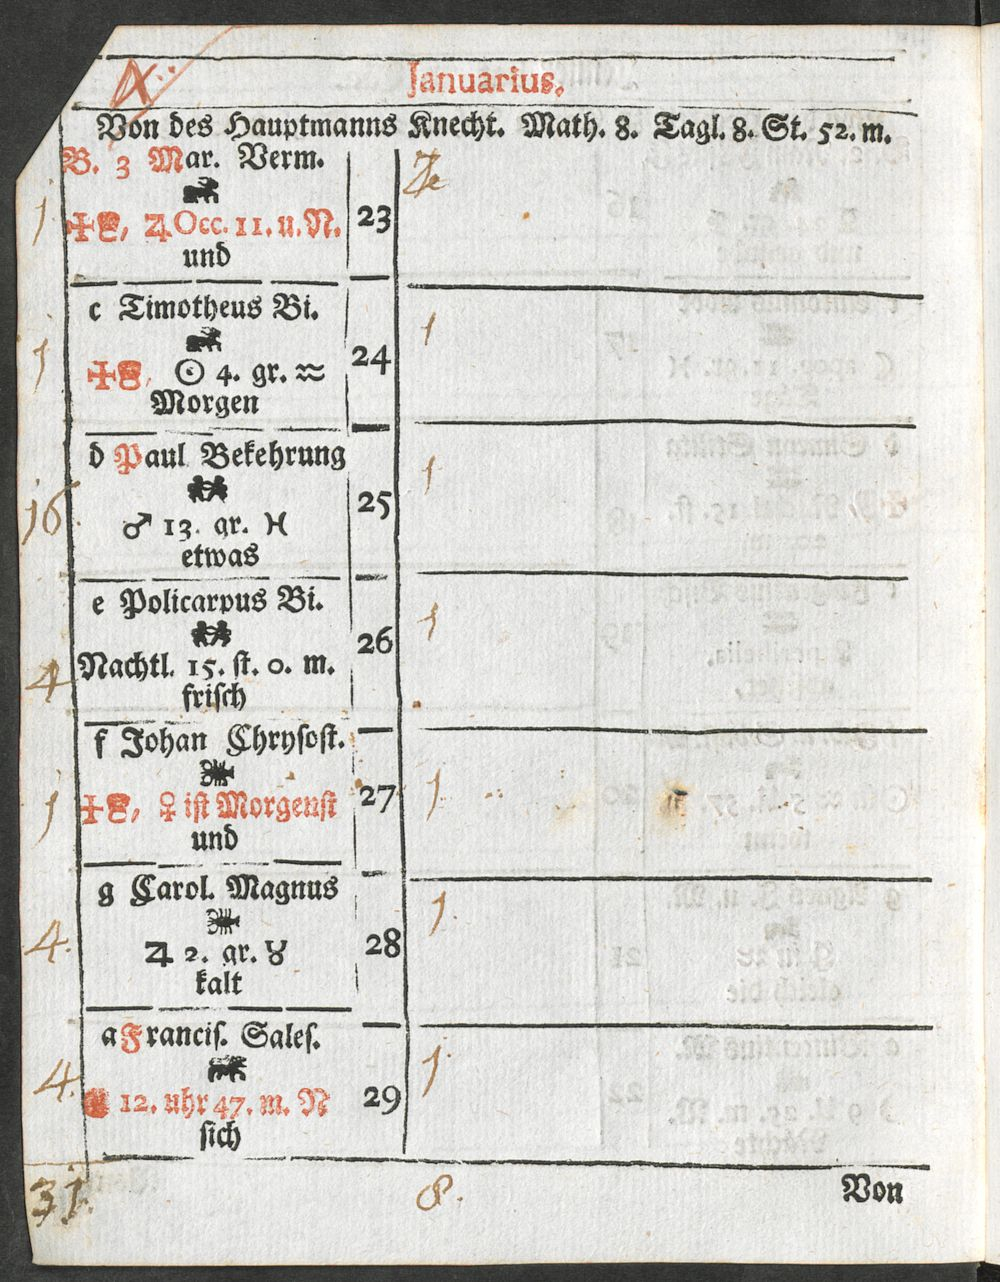 Januarius.
Von des Hauptmanns Knecht. Math. 8. Tagl. 8. St. 52. m.
B. 3 Mar. Verm.
1 ♃ Occ. 11. u. N. 23
und
c Timotheus Bi. 1
1 ☉ 4. gr. ♒ 24
Morgen
d Paul Bekehrung 1
16. ♂ 13. gr. ♓ 25
etwas
e Policarpus Bi. 1
4 Nachtl. 15. st. 0. m. 26
frisch
f Johan Chrysost.
1 ♀ ist Morgenst 27 1
und
g Carol. Magnus 1.
4. ♃ 2. gr. ♉ 28
kalt
a Francis. Sales. 1.
4. 12. uhr 47. m. N 29
sich
31. 8. Von